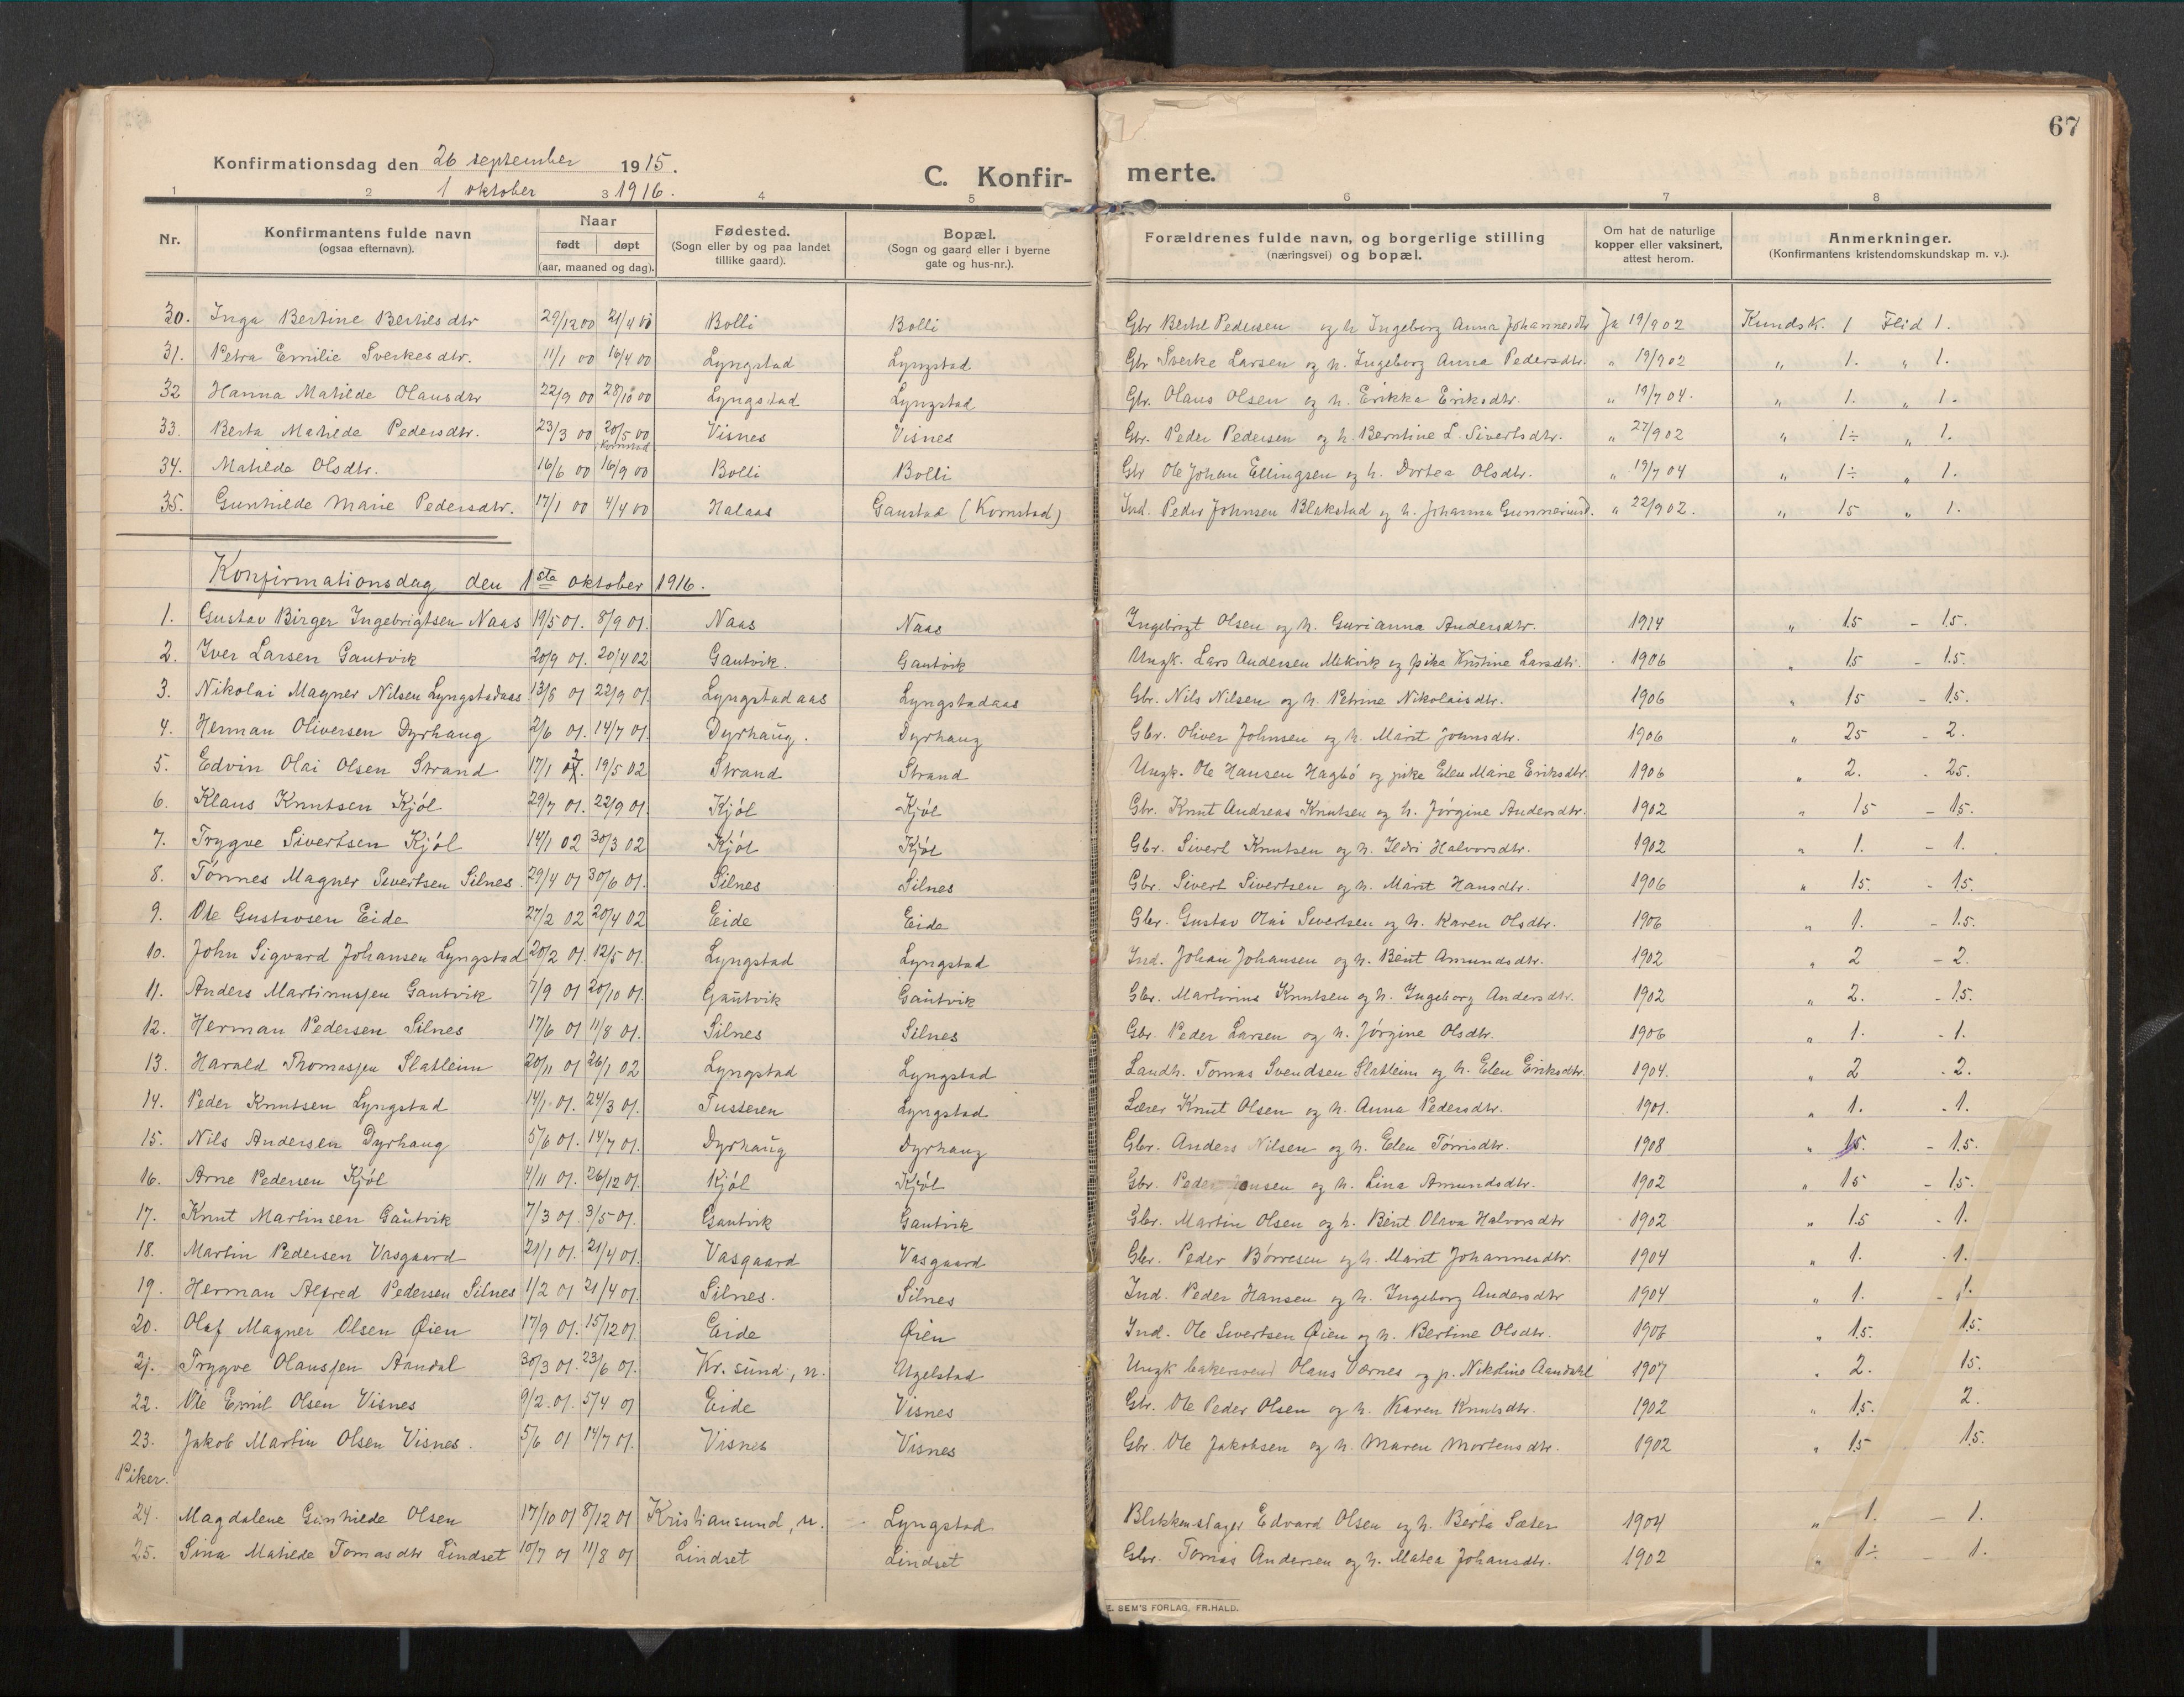 67
Konfirmationsdag den 26 september 1915.
1 oktober 1916.
C. Konfirmerte.
1 2 3 4 5 6 7 8
Nr. | Konfirmantens fulde navn (ogsaa efternavn). | Naar født døpt (aar, maaned og dag). | Fødested. (Sogn eller by og paa landet tillike gaard). | Bopæl. (Sogn og gaard eller i byerne gate og hus-nr.). | Forældrenes fulde navn, og borgerlige stilling (næringsvei) og bopæl. | Om hat de naturlige kopper eller vaksinert, attest herom. | Anmerkninger. (Konfirmantens kristendomskundskap m. v.).
30. Inga Bertine Bertilsdtr 29/12 00 21/4 00 Bolli Bolli Gbr Bertil Pedersen og h Ingeborg Anna Johannesdtr Ja 19/9 02 Kundsk. 1 Flid 1.
31. Petra Emilie Sverkesdtr. 11/1 00 16/4 00 Lyngstad Lyngstad Gbr Sverke Larsen og h. Ingeborg Anna Pedersdtr. " 19/9 02 " 1. " 1.
32 Hanna Matilde Olausdtr 22/9 00 28/10 00 Lyngstad Lyngstad Gbr. Olaus Olsen og h. Erikka Eriksdtr. " 19/7 04. " 1. " 1.
33. Berta Matilde Pedersdtr. 23/3 00 20/5 00 Kornstad Visnes Visnes Gbr. Peder Pedersen og h. Berntine L. Sivertsdtr. " 27/9 02 " 1÷ " 1.
34. Matilde Olsdtr. 16/6 00 16/9 00 Bolli Bolli Gbr Ole Johan Ellingsen og h. Dortea Olsdtr. " 19/7 04 " 1÷ " 1.
35. Gunhilde Marie Pedersdtr. 17/1 00 4/4 00 Halaas Gaustad (Kornstad) Ind. Peder Johnsen Blakstad og h. Johanna " 22/9 02. " 15 " 1.
Konfirmationsdag den 1ste oktober 1916.
1. Gustav Birger Ingebrigtsen Naas 19/5 01. 8/9 01. Naas Naas Ingebrigt Olsen og h. Gurianna Andersdtr. 1914 " 15 - 15.
2. Iver Larsen Gautvik 20/9 01. 20/4 02 Gautvik. Gautvik Ungk. Lars Andersen Mekvik og pike Kristine Larsdtr. 1906 " 15 - 15.
3. Nikolai Magner Nilsen Lyngstadaas 13/8 01 22/9 01. Lyngstadaas Lyngstadaas Gbr. Nils Nilsen og h. Petrine Nikolaisdtr. 1906 " 15 - 15.
4. Herman Oliversen Dyrhaug 2/6 01. 14/7 01. Dyrhaug. Dyrhaug Gbr. Oliver Johnsen og h. Marit Johnsdtr. 1906 " 25 - 2.
5. Edvin Olai Olsen Strand 17/1 02. 19/5 02 Strand Strand Ungk. Ole Hansen Hagbö og pike Elen Marie Eriksdtr. 1906 " 2. - 25.
6. Klaus Knutsen Kjöl 29/7 01. 22/9 01. Kjöl Kjöl Gbr. Knut Andreas Knutsen og h. Jörgine Andersdtr. 1902 " 15 - 15.
7. Trygve Sivertsen Kjöl 14/1 02 30/3 02 Kjöl Kjöl Gbr. Sivert Knutsen og h. Ildri Halvorsdtr. 1902 " 1. - 1.
8. Tönnes Magner Sivertsen Silnes. 29/4 01 30/6 01. Silnes Silnes Gbr. Sivert Sivertsen og h. Marit Hansdtr. 1906 " 15. - 15.
9. Ole Gustavsen Eide 27/2 02 20/4 02 Eide Eide Gbr. Gustav Olai Sivertsen og h. Karen Olsdtr. 1906 " 1. - 15.
10. John Sigvard Johansen Lyngstad 20/2 01. 12/5 01. Lyngstad Lyngstad Ind. Johan Johansen og h. Berit Amundsdtr. 1902 " 2 - 2.
11. Anders Martinussen Gautvik 7/9 01 20/10 01. Gautvik Gautvik Gbr. Martinius Knutsen og h. Ingeborg Andersdtr. 1902 " 2. - 15.
12. Herman Pedersen Silnes 17/6 01 11/8 01. Silnes Silnes Gbr. Peder Larsen og h. Jörgine Olsdtr. 1906 " 1. - 1.
13. Harald Thomassen Slatleim 20/11 01 26/1 02 Lyngstad Lyngstad Landh. Tomas Svendsen Slatleim og h. Elen Eriksdtr. 1904. " 2 - 2.
14. Peder Knutsen Lyngstad 14/1 01. 24/3 01. Tusteren Lyngstad Lærer Knut Olsen og h. Anna Pedersdtr. 1901. " 1. - 1.
15. Nils Andersen Dyrhaug 5/6 01. 14/7 01. Dyrhaug Dyrhaug Gbr. Anders Nilsen og h. Elen Törrisdtr. 1908 " 15. - 15.
16. Arne Pedersen Kjöl 4/11 01. 26/12 01. Kjöl Kjöl Gbr. Peder Jonsen og h. Lina Amundsdtr. 1902 " 15 - 15.
17. Knut Martinsen Gautvik 7/3 01. 3/5 01. Gautvik Gautvik Gbr. Martin Olsen og h. Berit Olava Halvorsdtr 1902 " 15 - 1.
18. Martin Pedersen Vasgaard 21/1 01. 21/4 01. Vasgaard Vasgaard Gbr. Peder Børresen og h. Marit Johannesdtr. 1904 " 1. - 1.
19. Herman Alfred Pedersen Silnes 1/2 01 21/4 01. Silnes. Silnes Ind. Peder Hansen og h. Ingeborg Andersdtr 1904 " 1. - 1.
20. Olaf Magner Olsen Øien 17/9 01. 15/12 01. Eide Øien Ind. Ole Sivertsen Øien og h. Bertine Olsdtr. 1906 " 15. 15.
21. Trygve Olaussen Aandal 30/3 01. 23/6 01. Kr. sund, n. Ugelstad Ungk bakersvend Olaus Varnes og p. Nikoline Aandahl 1907 " 2. 15.
22. Ole Emil Olsen Visnes 9/2. 01. 5/4 01 Eide Visnes Gbr. Ole Peder Olsen og h. Karen Knutsdtr. 1902 " 15. 2.
23. Jakob Martin Olsen Visnes. 5/6 01 14/7 01. Visnes Visnes Gbr. Ole Jakobsen og h. Maren Mortensdtr. 1902 " 15 15.
Piker.
24. Magdalene Gunhilde Olsen 17/10 01 8/12 01 Kristiansund, n. Lyngstad Blikkenslager Edvard Olsen og h. Berta Sæter 1904 " 1. - 1.
25. Lina Matilde Tomasdtr Lindset 10/7 01 11/8 01 Lindset Lindset Gbr. Tomas Andersen og h. Matea Johansdtr. 1902 " 1÷ - 1.
E. SEM'S FORLAG, FR.HALD.